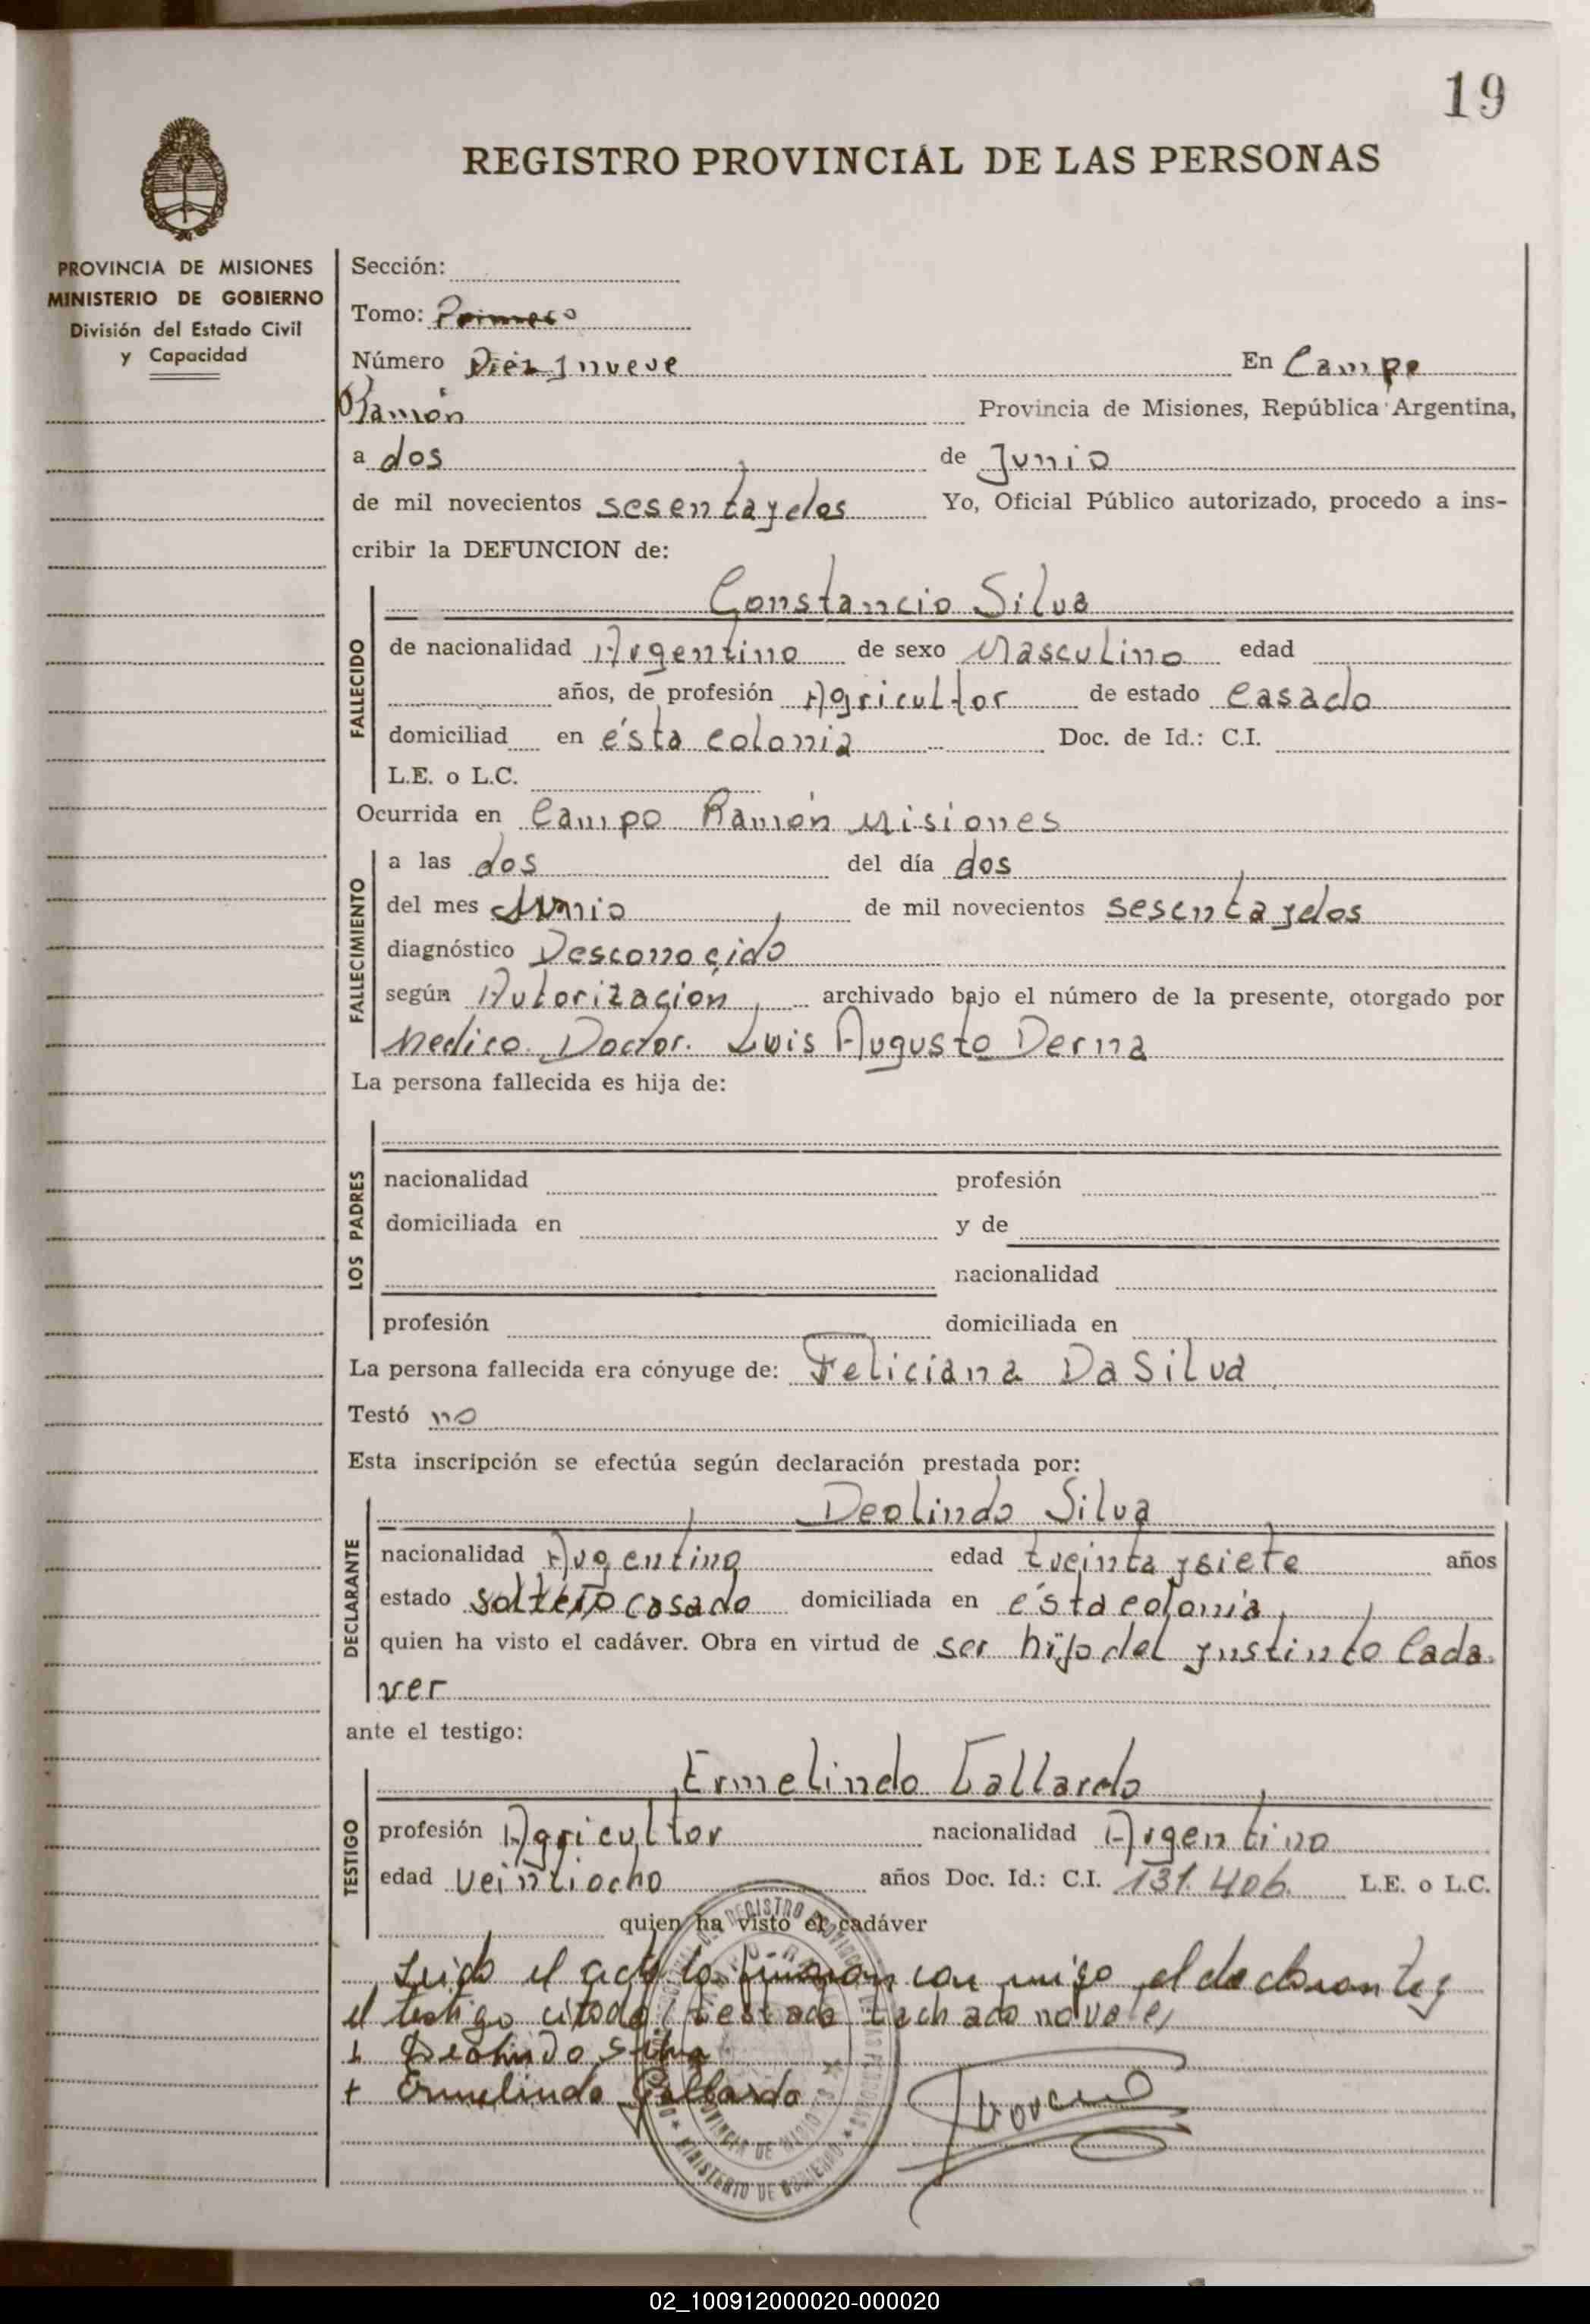 19
REGISTRO PROVINCIAL DE LAS PERSONAS
PROVINCIA DE MISIONES
MINISTERIO DE GOBIERNO
División del Estado Civil
y Capacidad
Sección:
Tomo: Primero
Número Diez y nueve En Campo
Ramón Provincia de Misiones, República Argentina,
a dos de Junio
de mil novecientos sesenta y dos Yo, Oficial Público autorizado, procedo a ins-
cribir la DEFUNCION de:
Constancio Silva
FALLECIDO
de nacionalidad Argentino de sexo Masculino edad
años, de profesión Agricultor de estado Casado
domiciliad en ésta colonia Doc. de Id.: C.I.
L.E. o L.C.
Ocurrida en Campo Ramón Misiones
FALLECIMIENTO
a las dos del día dos
del mes Junio de mil novecientos sesenta y dos
diagnóstico Desconocido
según Autorización archivado bajo el número de la presente, otorgado por
Medico Doctor. Luis Augusto Derna
La persona fallecida es hija de:
LOS PADRES
nacionalidad profesión
domiciliada en y de
nacionalidad
profesión domiciliada en
La persona fallecida era cónyuge de: Feliciana Da Silva
Testó no
Esta inscripción se efectúa según declaración prestada por:
Deolindo Silva
DECLARANTE
nacionalidad Argentino edad treinta y siete años
estado soltero casado domiciliada en ésta colonia
quien ha visto el cadáver. Obra en virtud de ser hijo del ynstinto Cada
ver
ante el testigo:
Ermelindo Gallardo
TESTIGO
profesión Agricultor nacionalidad Argentino
edad veintiocho años Doc. Id.: C.I. 131.406. L.E. o L.C.
quien ha visto el cadáver
Leido el acta la firman con migo el declarante y
el testigo citado, testado tachado no vale,
+ Deolindo Silva
+ Ermelindo Gallardo
MINISTERIO DE GOBIERNO
PROVINCIA DE
02_100912000020-000020